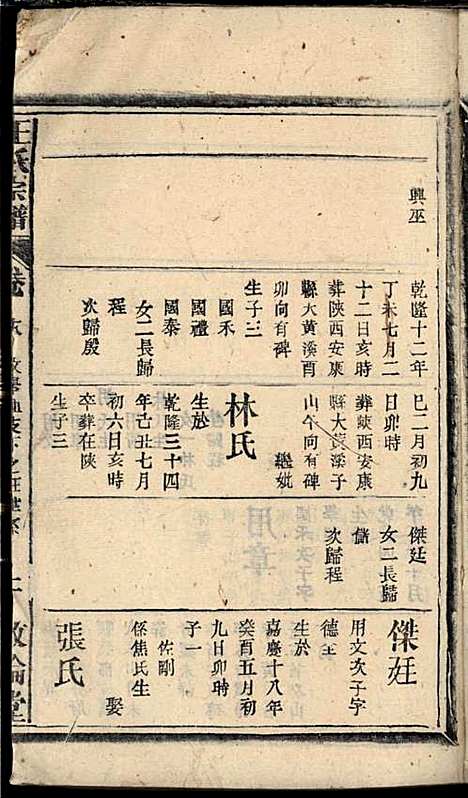 興巫
乾隆十二年
丁未七月二
十二日亥時
葬陝西安康
縣大黃溪酉
卯向有碑
生子三
國禾
國禮
國泰
女二長歸
程
次歸殷
巳二月初九
日卯時
葬陝西安康
縣大黃溪子
山午向有碑
繼妣
林氏
生於
乾隆三十四
年己丑七月
初六日亥時
卒葬在陝
生子三
傑廷
儲
女二長歸
次歸程
傑廷
用文次子字
德王
生於
嘉慶十八年
癸酉五月初
九日卯時
子一
佐剛
係焦氏生
娶
張氏
王氏宗譜
卷
敦倫堂